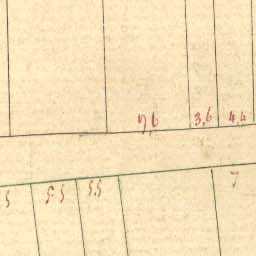 9,6 3,6 4,4
5 5.5 5,5 7